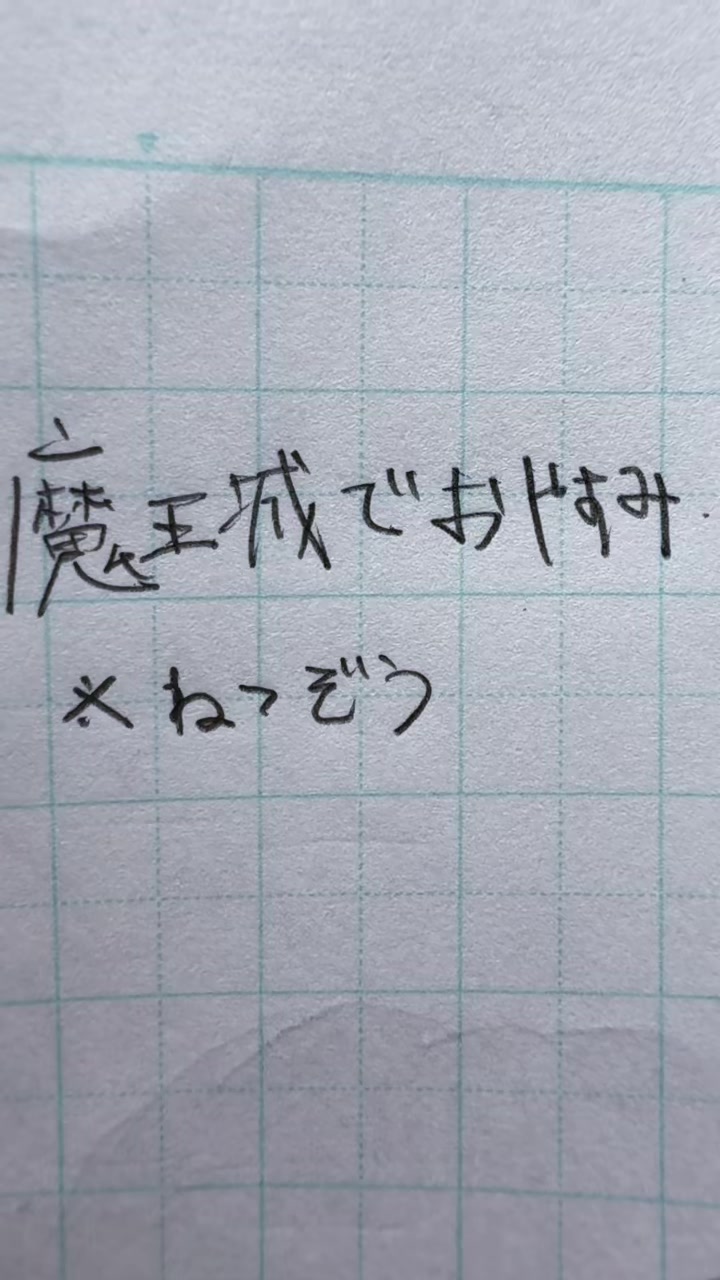 魔王城でおやすみ
※ねつぞう